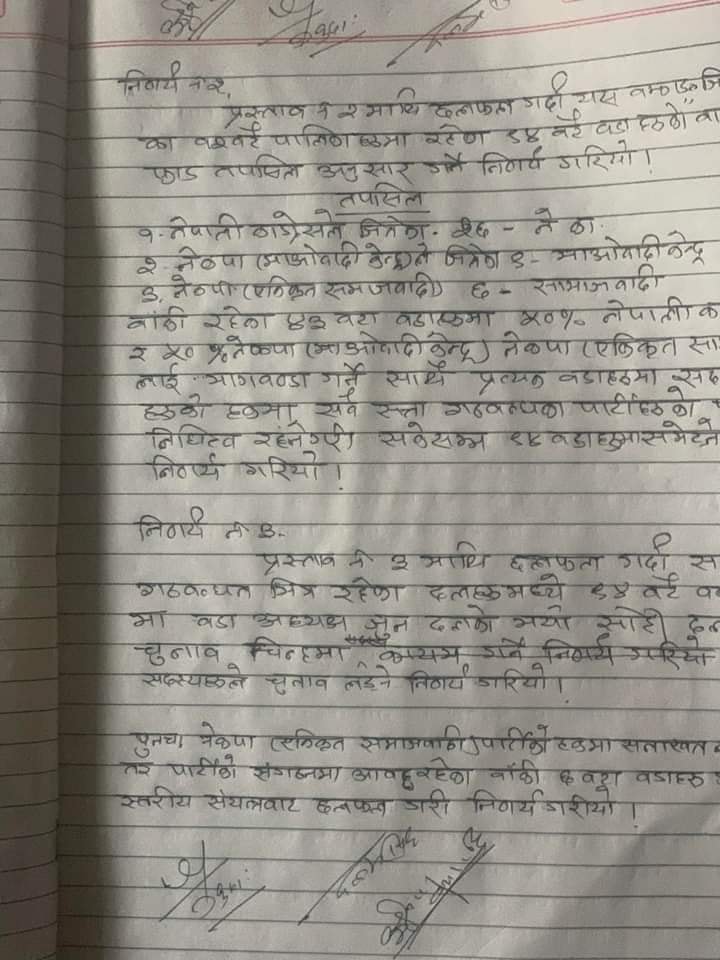 निर्णय नं २,
प्रस्ताव नं २ माथि छलफल गर्दा यस बझाङ जि
का वटै पालिकाहरुमा रहेका ९४ वटै वडाहरुको बा
फाड तपसिल अनुसार गर्ने निर्णय गरियो।
तपसिल
१. नेपाली काङ्ग्रेसले जितेका - २६ - ने का.
२. नेकपा (माओवादी केन्द्र)ले जितेका ९ - माओवादी केन्द्र
३. नेकपा (एकिकृत समाजवादी) ६ - समाजवादी
बाँकी रहेका ४३ वटा वडाहरुमा ५०% नेपाली का
र ५० % नेकपा (माओवादी केन्द्र) नेकपा (एकिकृत सा
लाई भागवण्डा गर्ने साथै प्रत्यक वडाहरुमा सद
हरुको हकमा सवै सत्ता गठवन्धनका पार्टीहरुको
निधित्व रहनेगरी सकेसम्म ९४ वडाहरुमा समेटने
निर्णय गरियो।
निर्णय नं ३.
प्रस्ताव नं ३ माथि छलफल गर्दा स
गठवन्धन भित्र रहेका दलहरुमध्ये ९४ वटै व
मा वडा अध्यक्ष जुन दलको भयो सोही दल
चुनाव चिन्हमा कायम गर्ने निर्णय गरियो
सदस्यहरुले चुनाव लड्ने निर्णय गरियो।
पुनश्च नेकपा (एकिकृत समाजवादी) पार्टीको हकमा
तर पार्टीको संगठनमा आवद्ध रहेका बाँकी ६ वटा वडाहरु
स्तरीय संयन्त्रवाट छलफल गरी निर्णय गरीयो।